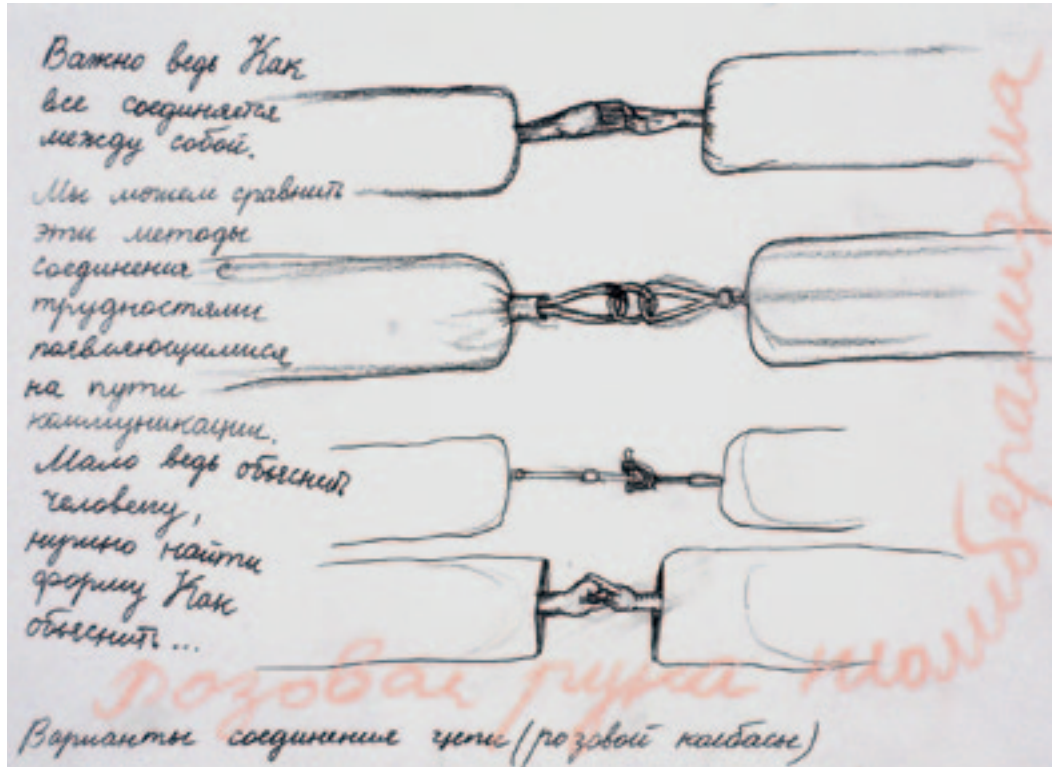 Важно ведь Как
все соединяется
между собой.
Мы можем сравнить
эти методы
соединения с
трудностями
появляющимися
на пути
коммуникации.
Мало ведь обьяснить
человеку,
нужно найти
форму Как
обьяснить...
розовая рука неолиберализма
Варианты соединения цепи (розовой колбасы)